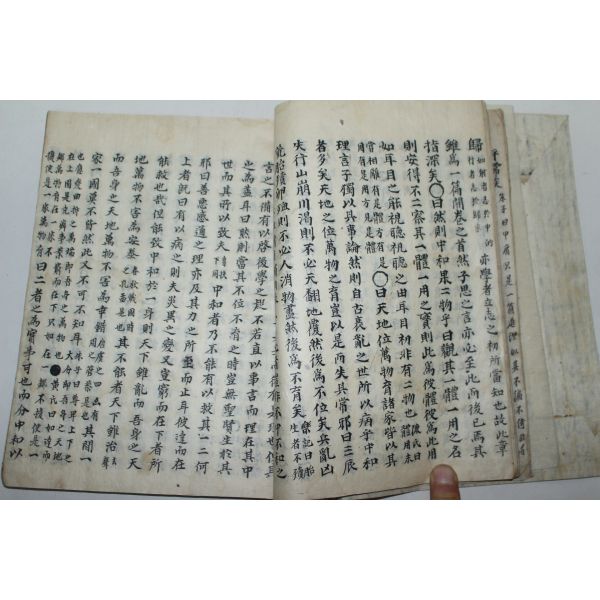 平常矣 朱子曰中庸只是一箇道理以其不偏不倚故
歸如射者志於中的行者志於歸家亦學者立志之初所當知也故此章
雖爲一篇開卷之首然子思之言亦必至此而後已焉其
指深矣〇曰然則中和果二物乎曰觀其一體一用之名
則安得不二察其一體一用之實則此爲彼體彼爲此用
如耳目之能視聽視聽之由耳目初非有二物也陳氏曰體用未
嘗相離有是體方有是用有是用方見是體〇曰天地位萬物育諸家皆以其
理言子獨以其事論然則自古衰亂之世所以病乎中和
者多矣天地之位萬物之育豈以是而失其常耶曰三辰
失行山崩川渴則不必天翻地覆然後爲不位矣兵亂凶
荒胎殰卵殈則不必人消物盡然後爲不育矣樂記曰胎生者不殰
言之不備有以啓後學之疑不若直以事言而理在其中
之爲盡耳曰然則當其不位不育之時豈無聖賢生於其
世而其所以致夫中和者乃不能有以救其一二何
耶曰善惡感通之理亦及其力之所至而止耳彼達而在
上者旣曰有以病之則夫災異之變又豈窮而在下者所
能救也哉但能致中和於一身則天下雖亂而吾身之天
地萬物不害爲安泰其不能者天下雖治
而吾身之天地萬物不害爲乖錯其間一
家一國莫不皆然此又不可不知耳
曰二者之爲實事可也而分中和以